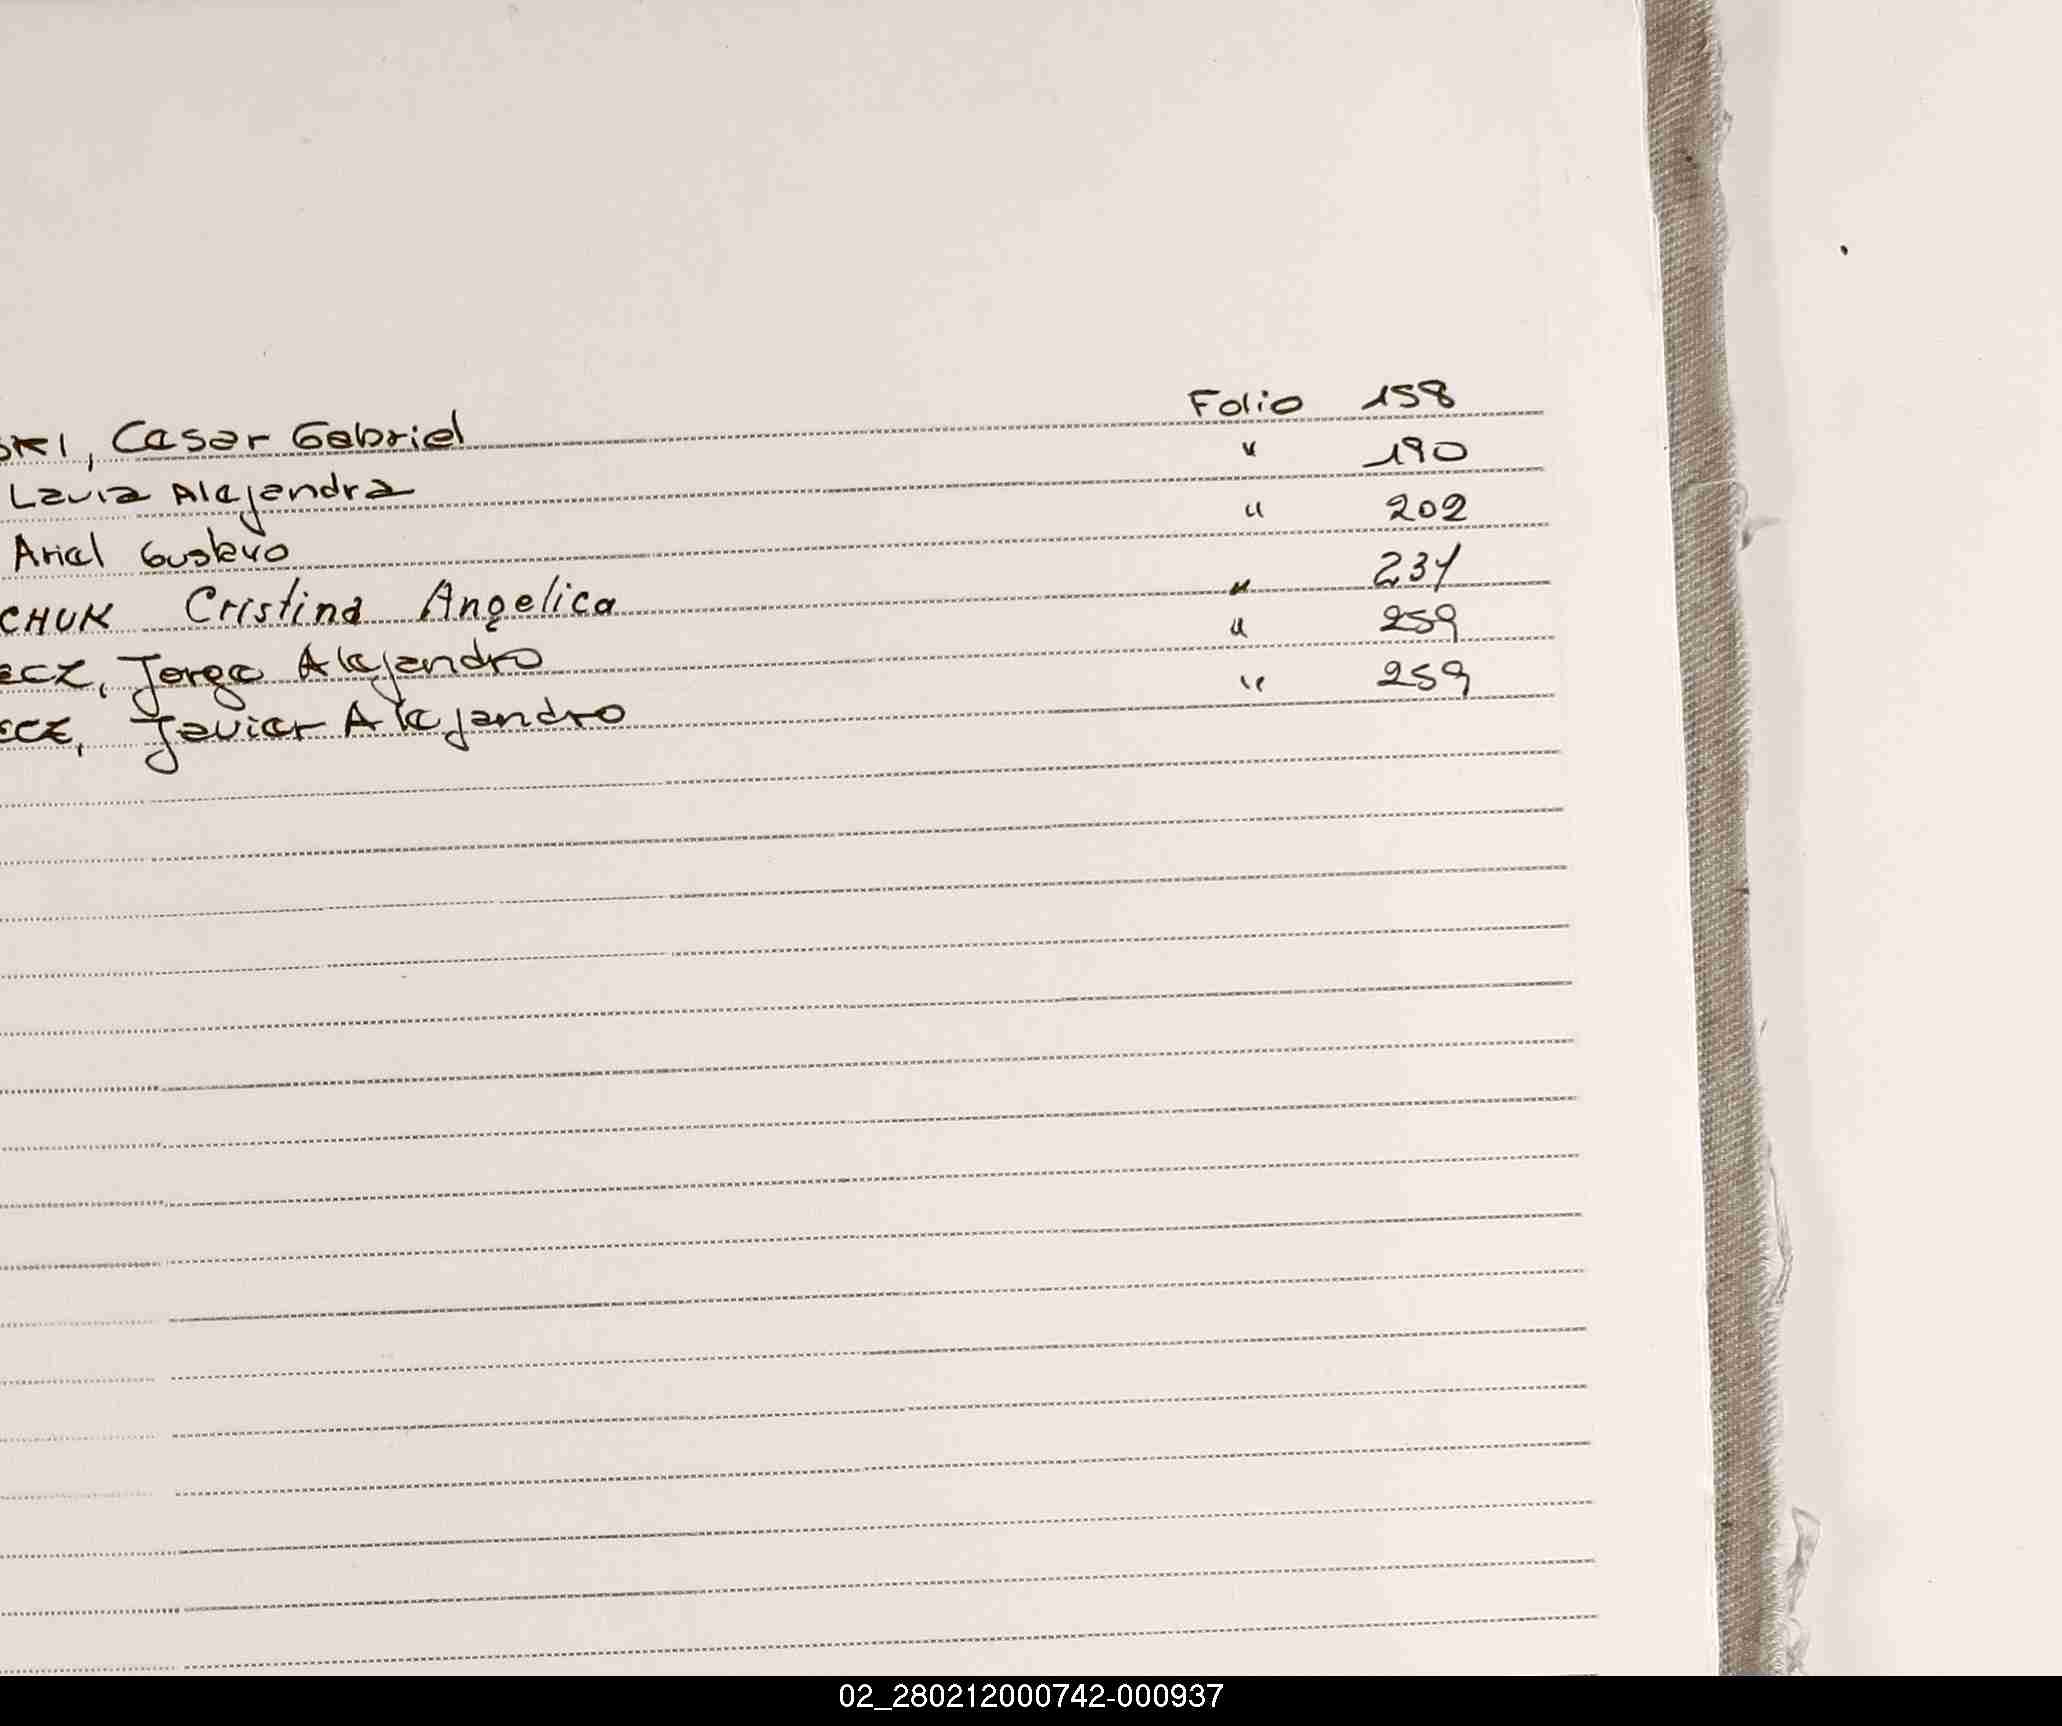 SKI, Cesar Gabriel Folio 158
Laura Alejandra " 190
Ariel Gustavo " 202
CHUK Cristina Angelica " 231
ECZ, Jorge Alejandro " 259
ECZ, Javier Alejandro " 259
02_280212000742-000937